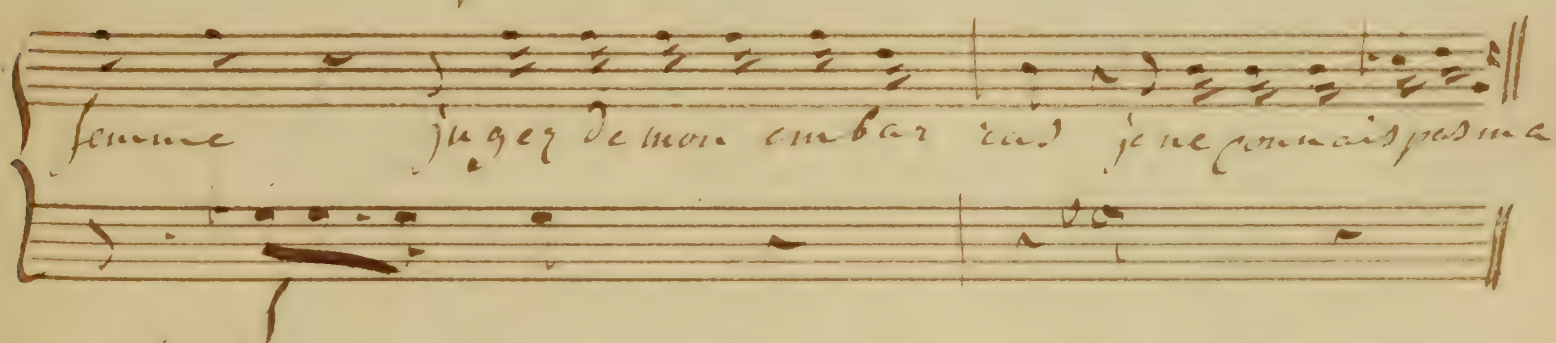 femme jugez de mon embar ras je ne connais pas ma